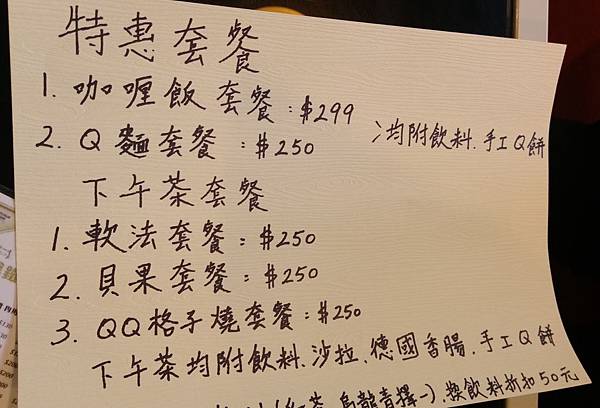 特惠套餐
1. 咖喱飯套餐:$299
2. Q麵套餐:$250 〉均附飲料、手工Q餅
下午茶套餐
1. 軟法套餐:$250
2. 貝果套餐:$250
3. QQ格子燒套餐:$250
下午茶均附飲料、沙拉、德國香腸、手工Q餅
(紅茶、烏龍青擇一)、換飲料折扣50元